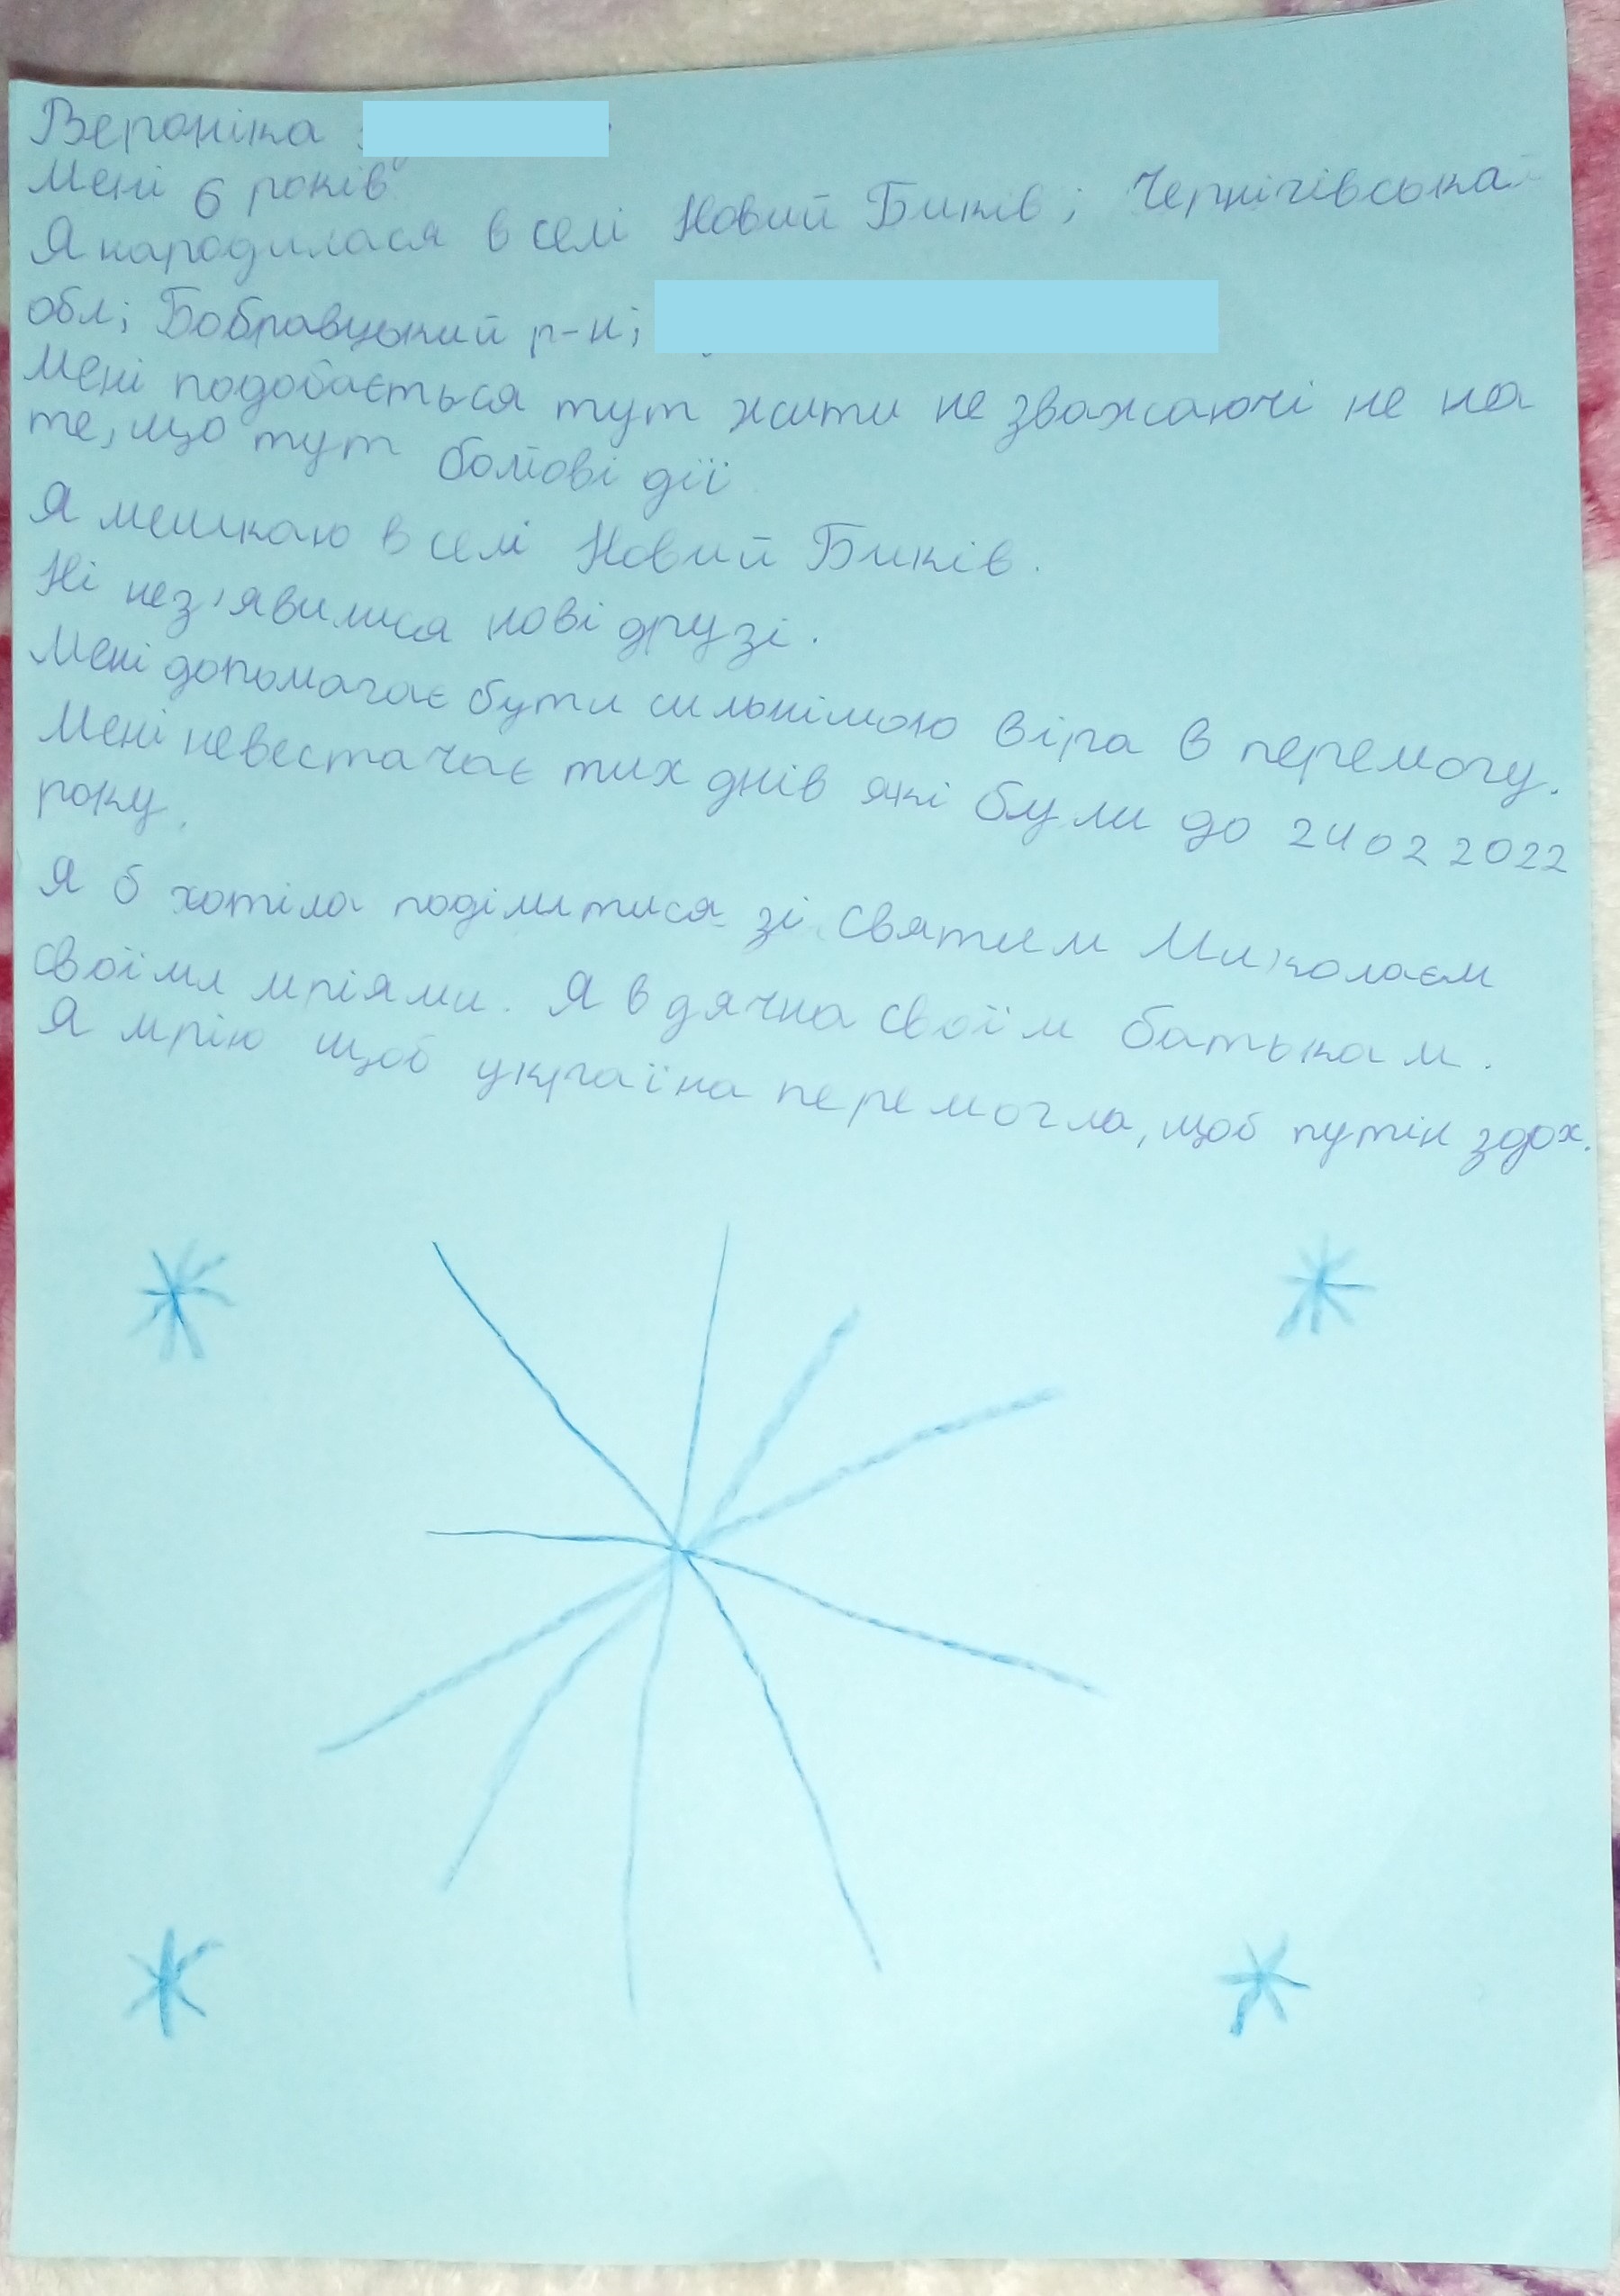 Вероніка
Мені 6 років
Я народилася в селі Новий Биків; Чернігівська
обл; Бобравицький р-н;
Мені подобається тут жити не зважаючі не на
те, що тут бойові дії
Я мешкаю в селі Новий Биків.
Ні нез'явилися нові друзі.
Мені допомагає бути сильнімою віра в перемогу.
Мені невестачає тих днів які були до 24 02 2022
року.
Я б хотіла поділитися зі Святим Миколаєм
своїми мріями. Я вдячна своїм батькам.
Я мрію щоб україна перемогла, щоб путін здох.